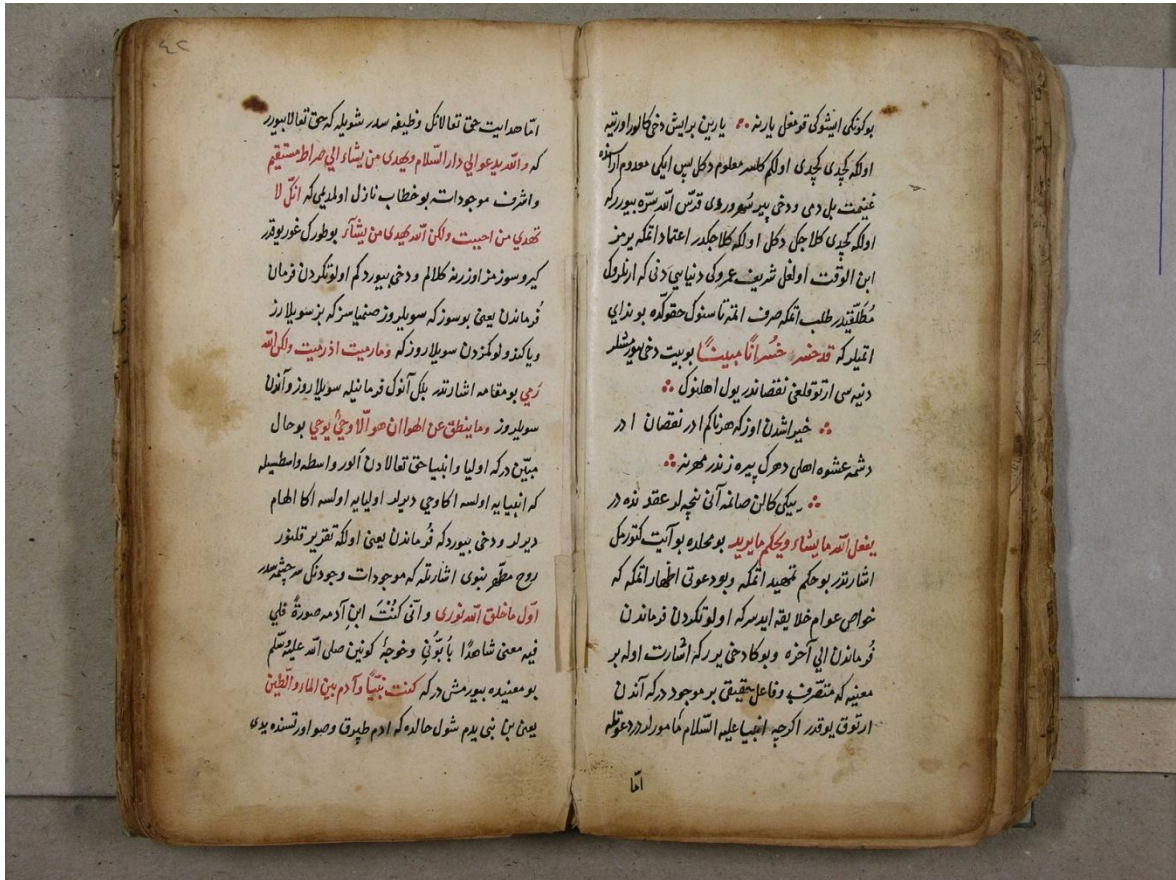 بوكونكى ايشوكى قومغل يارنه ∴ يارين بر ايش دخى كالور اورتيه
اولكه كچدى كچدى اولكم كلسر معلوم دكل پس ايكى معدوم آراسنده
غنيمت بل دمى ودخى پير سُهروردى قدّس الله سرّه بيوررکه
اولكه كچدى كلاجك دكل اولكه كلاجكدر اعتماد اتمكه يرمز
ابن الوقت اولغل شريف عمروكى دنياسى دنى كه ارنلروك
مُطلّقيدر طلب اتمكه صرف اتمه تا سنوك حقوكده بو ندايى
اتميلر كه قد خسر خُسرانًا مبينًا بو بيت دخى بيورمشلر
دنيه سى ارتوقلغى نقصاندر يول اهلنوك ∴
∴ خير اشدن اوزكه هر ناكم ادر نقصان ادر
دشمه عشوه اهلى دهرك پيره زندر مهرنه ∴
∴ ييكى كالن صانمه آنى نيجه لر عقدنده در
يفعل الله ما يشاء ويحكم ما يريد بو محلده بو آيت كتورمك
اشارتدر بو حكم تمهيد اتمكه وبو دعوتى اظهار اتمكه كه
خواص عوام خلايقه ايدسركه اولوتكردن فرماندن
فُرماندن الى آخره وبوكا دخى يرركه اشارت اوله بر
معنيه كه متصّرف وفاعل حقيقى بر موجود دركه آندن
ارتوق يوقدر اكرچه انبيا عليه السّلام مامورلردر دعوتله
امّا
٤٢
امّا هدايت حق تعالانك وظيفه سدر شويله كه حق تعالا بيورر
كه والله يدعو الى دار السّلام ويهدى من يشاء الى صراط مستقيم
واشرف موجودات بو خطاب نازل اولمديمى كه انّك لا
تهدي من احببت ولكن الله يهدى من يشآء بو طورك غور يوقدر
كيرو سوزمز اوزرنه كلالم ودخى بيوردكم اولوتكردن فرمان
فُرماندن يعنى بو سوز كه سويلروز صنمياسز كه بز سويلارز
ويا كندولوكمزدن سويلاروز كه وما رميت اذ رميت ولكن الله
رمي بو مقامه اشارتدر بلكى آنوك فرمانيله سويلاروز وآندن
سويلروز وما ينطق عن الهوا ان هو الّا وحيٌ يوحي بو حال
مبيّن دركه اوليا وانبيا حق تعالادن آلور واسطه واسطسيله
كه انبيايه اولسه اكا وحي ديرلر اوليايه اولسه اكا الهام
ديرلر ودخى بيوردكه فُرماندن يعنى اولكه تقرير قلنور
روح مطّهر نبوى اشارتله كه موجودات وجودنك سرچشمه سدر
اوّل ما خلق الله نورى وانّى كنْتُ ابن آدمه صورةً فلي
فيه معنى شاهدًا بأبوّتي وخوجۀ كونين صلى الله عليه وسّلم
بو معنيده بيورمش دركه كنت نبّيًا وآدم بين الماء والطين
يعنى بن نبى يدم شول حالده كه ادم طپرق وصو اورتسنده يدى